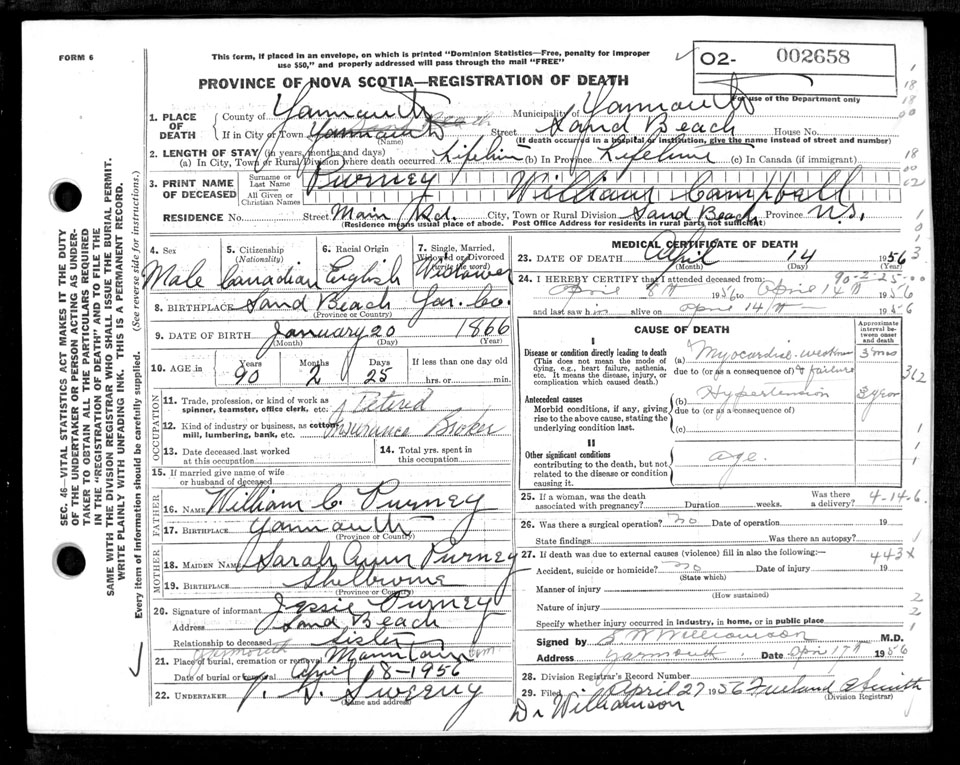 FORM 6
This form, if placed in an envelope, on which is printed "Dominion Statistics—Free, penalty for improper
use $50," and properly addressed will pass through the mail "FREE"
PROVINCE OF NOVA SCOTIA—REGISTRATION OF DEATH
02- 002658
For use of the Department only.
1. PLACE OF DEATH
County of Yarmouth Municipality of Yarmouth
If in City or Town Yarmouth Street Sand Beach House No.
(Name) (If death occurred in a hospital or institution, give the name instead of street and number)
2. LENGTH OF STAY (in years, months and days)
(a) In City, Town or Rural Division where death occurred Lifetime (b) In Province Lifetime (c) In Canada (if immigrant)
3. PRINT NAME OF DECEASED
Surname or Last Name Purney
All Given or Christian Names William Campbell
RESIDENCE No. Street Main Rd. City, Town or Rural Division Sand Beach Province N.S.
(Residence means usual place of abode. Post Office Address for residents in rural parts not sufficient)
4. Sex Male
5. Citizenship (Nationality) Canadian
6. Racial Origin English
7. Single, Married, Widowed or Divorced (write the word) Widower
8. BIRTHPLACE Sand Beach Yar. Co.
(Province or Country)
9. DATE OF BIRTH January 20 1866
(Month) (Day) (Year)
10. AGE in Years 90 Months 2 Days 25 If less than one day old
hrs. or min.
OCCUPATION
11. Trade, profession, or kind of work as
spinner, teamster, office clerk, etc. Retired
12. Kind of industry or business, as cotton
mill, lumbering, bank, etc. Insurance Broker
13. Date deceased last worked
at this occupation
14. Total yrs. spent in
this occupation
15. If married give name of wife
or husband of deceased
FATHER
16. Name William C. Purney
17. Birthplace Yarmouth
(Province or Country)
MOTHER
18. Maiden Name Sarah Ann Purney
19. Birthplace Shelbourne
(Province or Country)
20. Signature of informant Jessie Purney
Address Sand Beach
Relationship to deceased Sister
21. Place of burial, cremation or removal Yarmouth Mountain Cem.
Date of burial or removal April 18-1956
22. Undertaker V. S. Sweeny
(Name and address)
MEDICAL CERTIFICATE OF DEATH
23. DATE OF DEATH April 14 1956
(Month) (Day) (Year)
90-2-25
24. I HEREBY CERTIFY that I attended deceased from:
April 8th 1956 to April 14th 1956
and last saw him alive on April 14th 1956
CAUSE OF DEATH
Approximate interval between onset and death
I
Disease or condition directly leading to death
(This does not mean the mode of dying, e.g., heart failure, asthenia, etc. It means the disease, injury, or complication which caused death.)
(a) Myocardial weakness & failure 3 mos
due to (or as a consequence of)
Antecedent causes
Morbid conditions, if any, giving rise to the above cause, stating the underlying condition last.
(b) Hypertension
due to (or as a consequence of)
(c)
II
Other significant conditions
contributing to the death, but not related to the disease or condition causing it.
age.
25. If a woman, was the death associated with pregnancy? Duration weeks. Was there a delivery?
4-14-6
26. Was there a surgical operation? no Date of operation 19
State findings Was there an autopsy?
27. If death was due to external causes (violence) fill in also the following:— 443X
Accident, suicide or homicide? no Date of injury 19
(State which)
Manner of injury
(How sustained)
Nature of injury
Specify whether injury occurred in industry, in home, or in public place
Signed by S W Williamson M.D.
Address Yarmouth. Date April 17th 1956
28. Division Registrar's Record Number
29. Filed April 27 1956 Smith
(Division Registrar)
Dr Williamson
SEC. 46—VITAL STATISTICS ACT MAKES IT THE DUTY
OF THE UNDERTAKER OR PERSON ACTING AS UNDER-
TAKER TO OBTAIN ALL THE PARTICULARS REQUIRED
IN THE "REGISTRATION OF DEATH" AND TO FILE THE
SAME WITH THE DIVISION REGISTRAR WHO SHALL ISSUE THE BURIAL PERMIT.
WRITE PLAINLY WITH UNFADING INK. THIS IS A PERMANENT RECORD.
Every item of information should be carefully supplied. (See reverse side for instructions.)